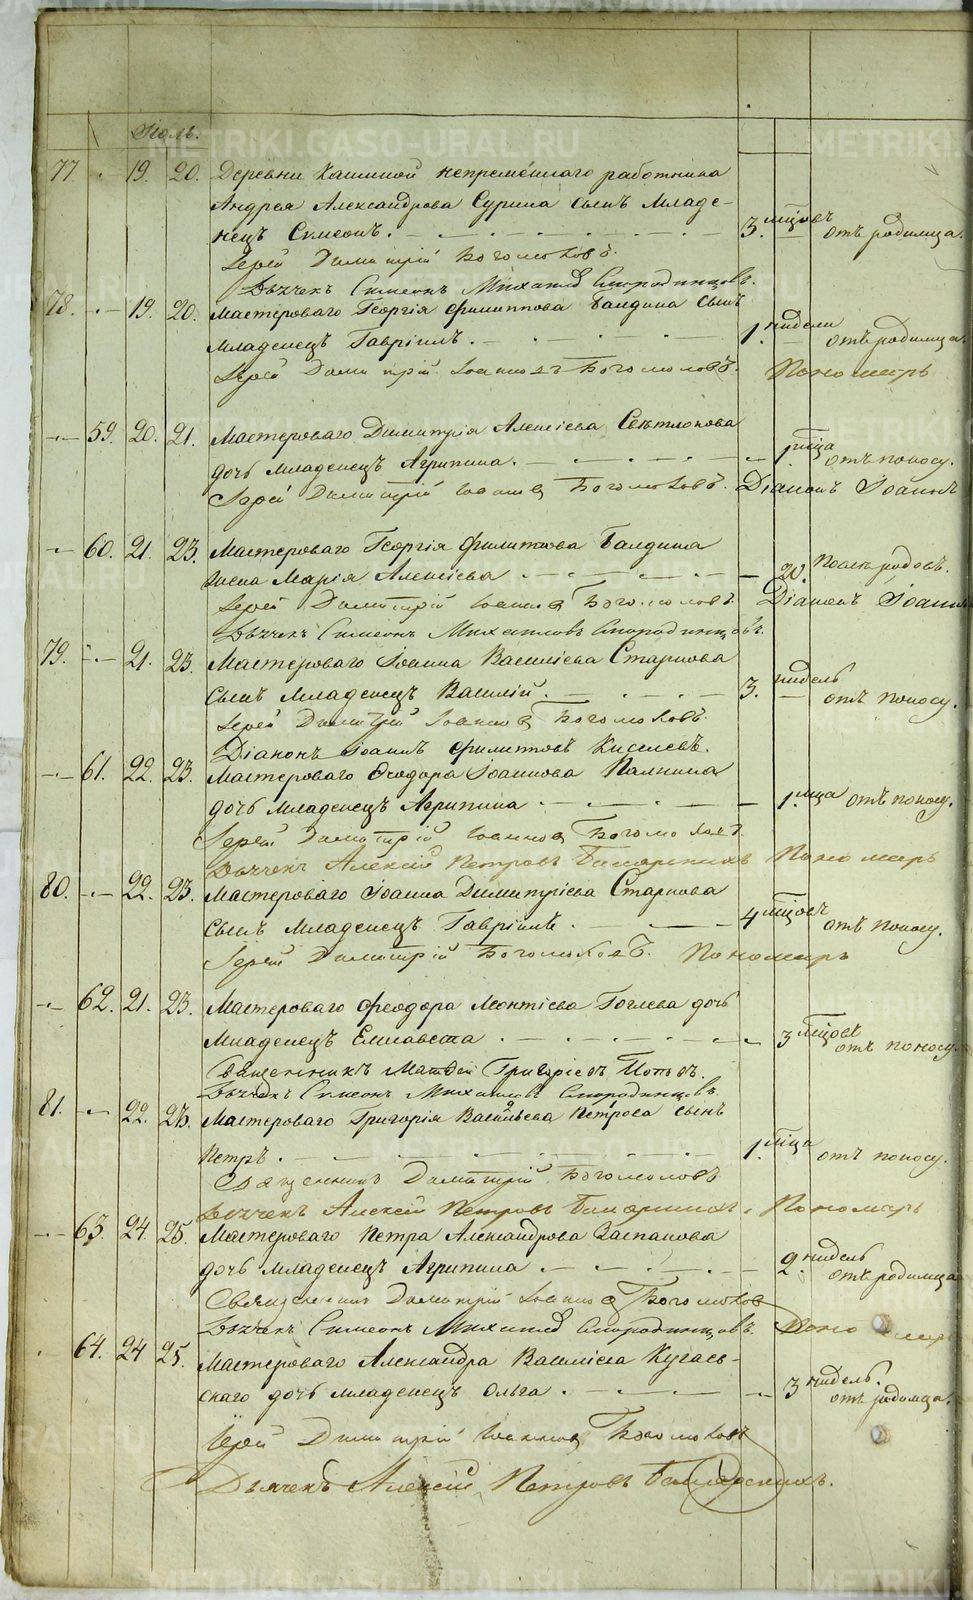 METRIKI.GASO-URAL.RU
Июль.
77. 19. 20. Деревни непремѣннаго работника
Андрея Александрова Сурина сынъ Младе-
нецъ Симеонъ. 3. мцовъ отъ родимца.
Іерей Димитрій Богомоловъ.
Дьячекъ Симеонъ Михайлов Смородинцовъ.
78. 19. 20. Мастероваго Георгія Филиппова Балдина сынъ
младенецъ Гавріилъ. 1. недели отъ родимца.
Іерей Димитрій Іоанновъ Богомоловъ. Пономарь
59. 20. 21. Мастероваго Димитрія Алексіева Свѣтлокова
дочь младенецъ Агрипина. 1 мца отъ поносу.
Іерей Димитрій Іоаннов Богомоловъ. Діаконъ Іоаннъ
60. 21. 23. Мастероваго Георгія Филипова Балдина
жена Марія Алексіева 20. после родовъ.
Іерей Димитрій Іоаннов Богомоловъ Діаконъ Іоаннъ
Дьячекъ Симеонъ Михаиловъ Смородинцовъ.
79. 21. 23. Мастероваго Іоанна Василіева Старкова
сынъ младенецъ Василій. 3. недель отъ поносу.
Іерей Димитрій Іоаннов Богомоловъ.
Діаконъ Іоаннъ Филиповъ Киселевъ.
61. 22. 23. Мастероваго Ѳеодора Іоаннова Палкина
дочь младенецъ Агрипина 1. мца отъ поносу.
Іерей Димитрій Іоаннов Богомоловъ
Дьячекъ Алексій Петровъ Пономарь
80. 22. 23. Мастероваго Іоанна Димитріева Старкова
сынъ младенецъ Гавріилъ. 4 мцовъ отъ поносу.
Іерей Димитрій Богомоловъ. Пономарь
62. 21. 23. Мастероваго Феодора Леонтіева Гоглева дочь
младенецъ Елисавета 3 мцовъ отъ поносу.
Священникъ Матѳей Григоріевъ Поповъ.
Дьячекъ Симеонъ Михаилов Смородинцовъ.
81. 22. 23. Мастероваго Григорія Васильева Петрова сынъ
Петръ. 1. мца отъ поносу.
Священник Димитрій Богомоловъ
Дьячекъ Алексій Петровъ Пономарь
63. 24. 25. Мастероваго Петра Александрова
дочь младенецъ Агрипина 2. недель отъ родимца
Священник Димитрій Іоаннов Богомолов
Дьячекъ Симеонъ Михайлов Смородинцовъ. Пономарь
64. 24 25. Мастероваго Александра Василіева Кугаев-
скаго дочь младенецъ Ольга. 3 недель. отъ родимца.
Іерей Димитрій Іоаннов Богомоловъ
Дьячекъ Алексій Петровъ